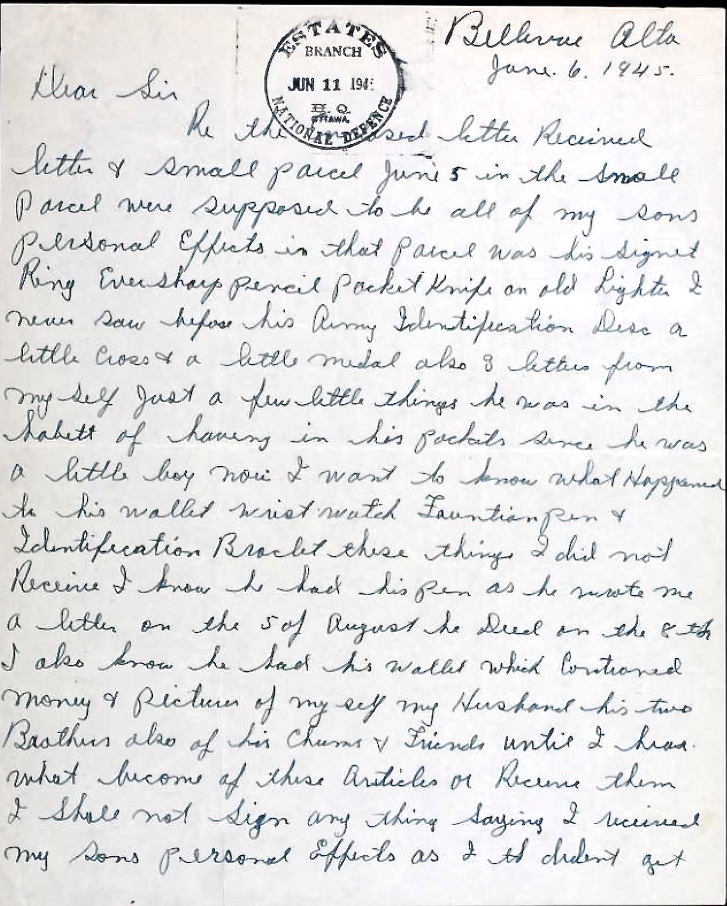 Bellevue Alta
June. 6. 1945.
ESTATES
BRANCH
JUN 11 194
H.Q.
OTTAWA
NATIONAL DEFENCE
Dear Sir
Re the sed letter Received
letter & small parcel June 5 in the small
Parcel were supposed to be all of my sons
Personal Effects in that parcel was his signet
Ring Eversharp pencil Pocket Knife an old Lighter I
never saw before his Army Identification Disc a
little Cross & a little medal also 3 letters from
my self Just a few little things he was in the
habett of having in his pockets since he was
a little boy now I want to know what Happened
to his wallet wrist watch Fauntian pen &
Identification Braclet these things I did not
Receive I know he had his pen as he wrote me
a letter on the 5 of August he Died on the 8 th
I also know he had his wallet which Contained
money & Pictures of my self my Husband his two
Brothers also of his Chums & Friends until I hear
what become of these Articles or Receive them
I Shall not sign any thing saying I received
my sons Personal Effects as I th dident get